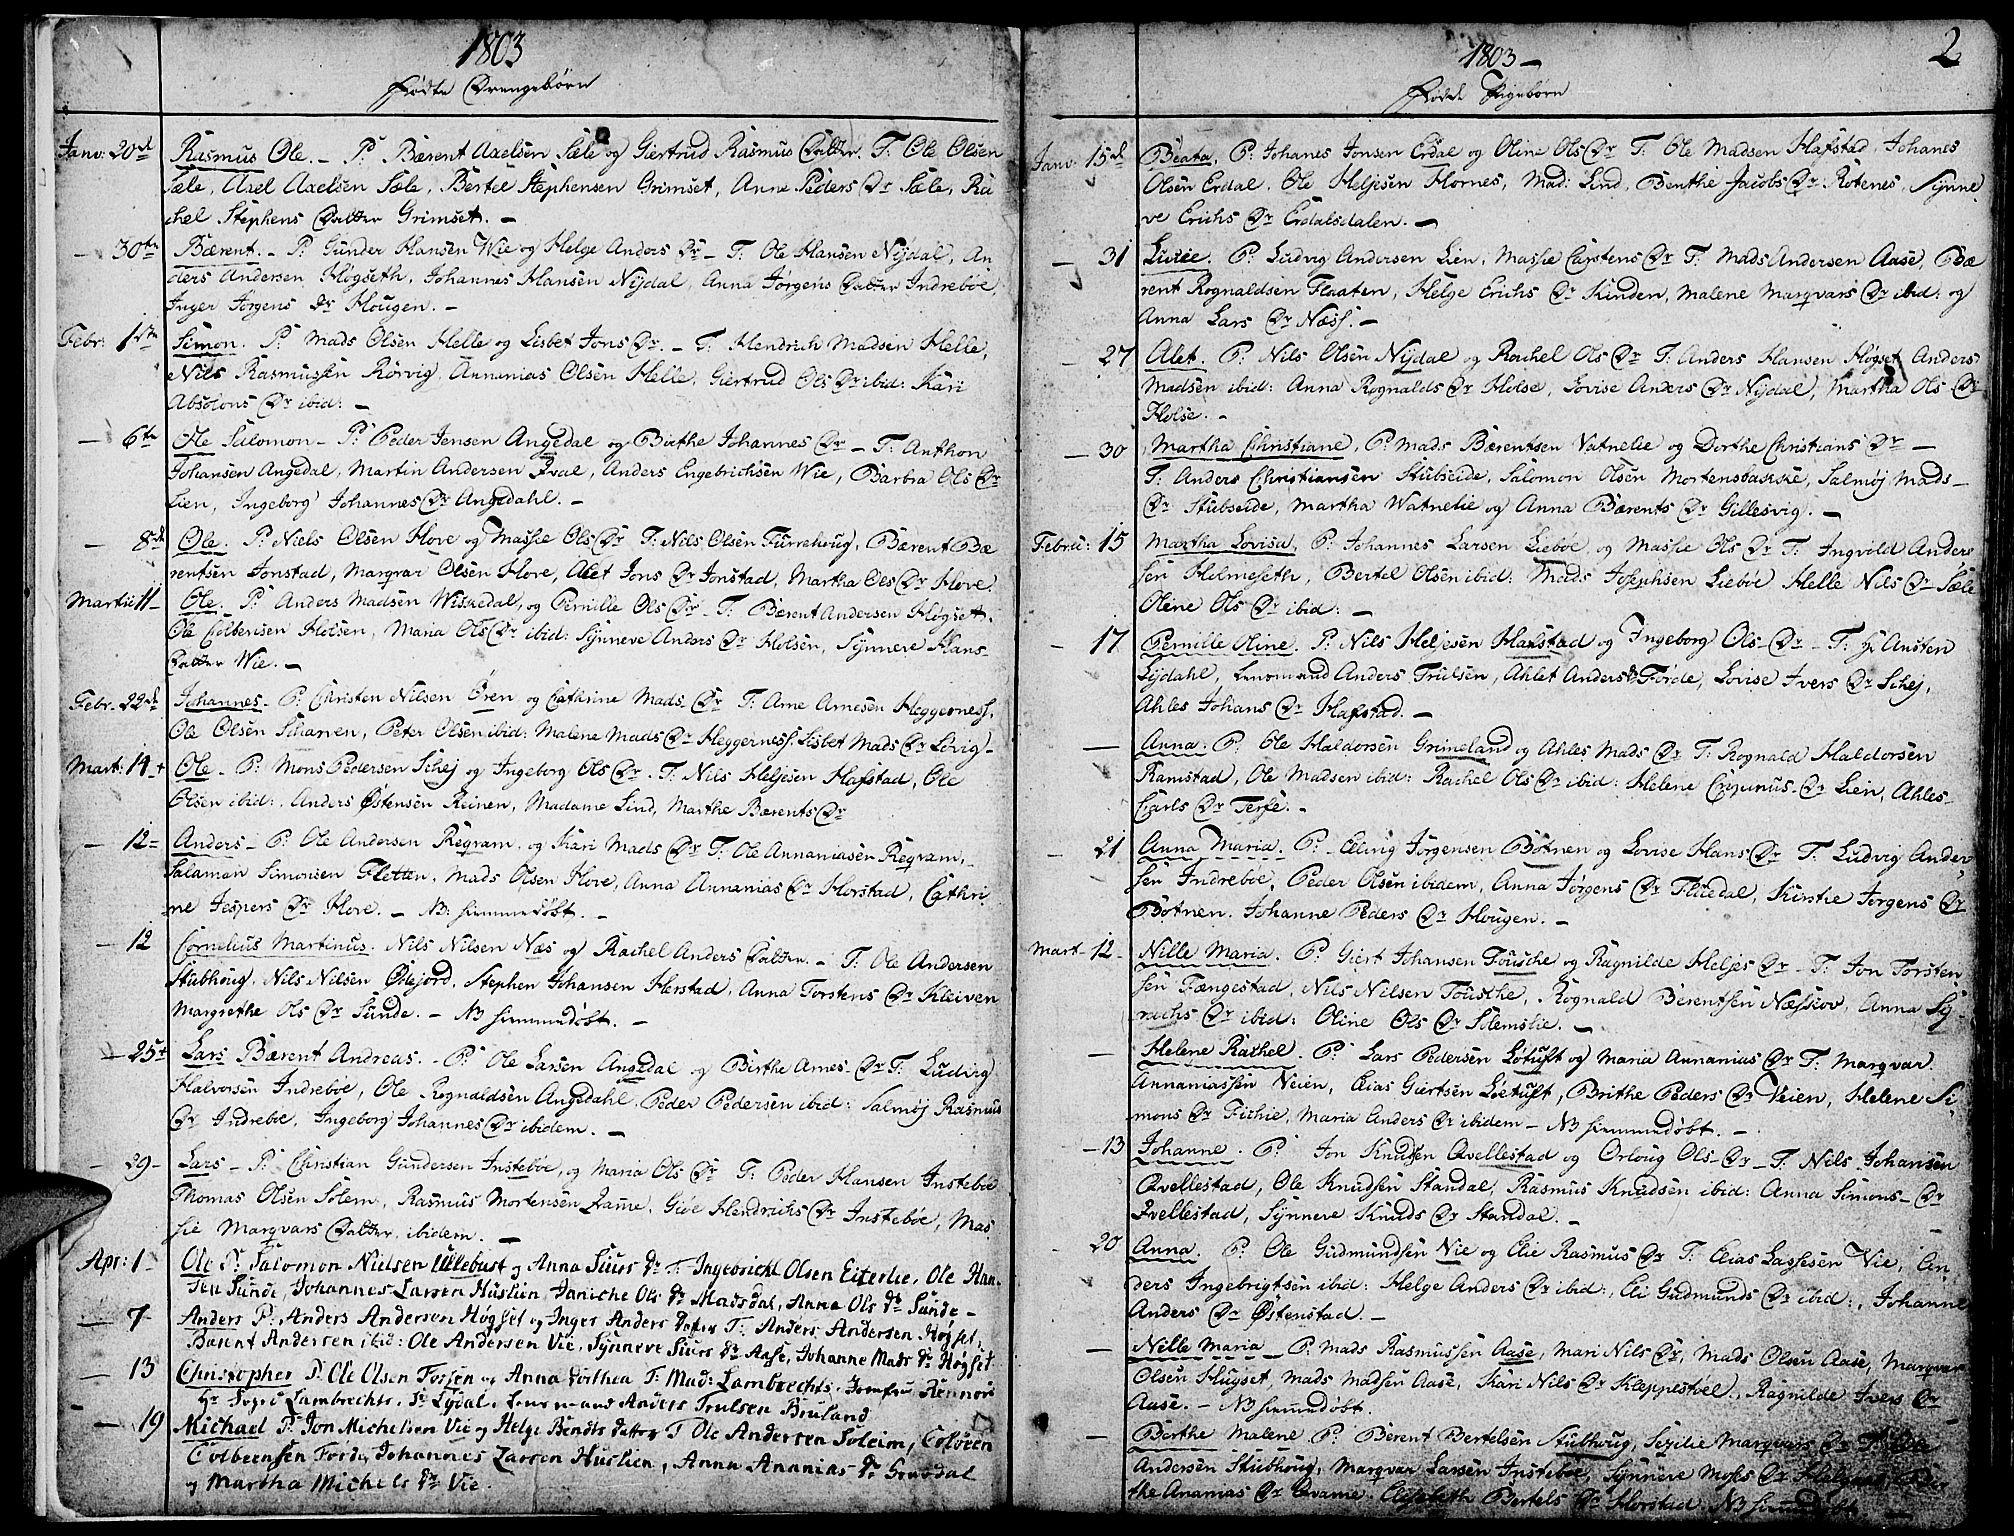 1803
Fødte Drengebørn
Janv: 20de Rasmus Ole. - P: Bærent Axelsen Sæle og Giertrud Rasmus Datter. T: Ole Olsen
Sæle, Axel Axelsen Sæle, Bertel Stephensen Grimset, Anne Peders Dr Sæle, Ra
chel Stephens Datter Grimset. -
- 30te Bærent. - P: Gunder Hansen Wie og Helge Anders Dr - T: Ole Hansen Nydal, An
ders Andersen Høgseth, Johannes Hansen Nydal, Anna Jørgens Datter Indrebøe,
Inger Jørgens Dr Hougen. -
Febr: 1ste Simon. P: Mads Olsen Helle og Lisbet Jons Dr. - T: Hendrich Madsen Helle,
Nils Rasmussen Rørvig, Annanias Olsen Helle, Giertrud Ols Dr ibid: Kari
Absolons Dr ibid: -
- 6te Ole Salomon - P: Peder Jensen Angedal og Birthe Johannes Dr - T: Anthon
Johansen Angedal, Martin Andersen Qval, Anders Engebrichsen Wie, Barbra Ols Dr
Lien, Ingeborg Johannes Dr Angedahl. -
- 8de Ole. P: Niels Olsen Hove og Massie Ols Dr T: Nils Olsen Furrehoug, Bærent Bæ
rentsen Jonstad, Marqvar Olsen Hove, Alet Jons Dr Jonstad, Martha Ols Dr Hove.
Martii 11 - Ole. P: Anders Madsen Wiskedal, og Pernille Ols Dr - T: Bærent Andersen Høgset,
Ole Colbensen Holsen, Maria Ols Dr ibid: Synneve Anders Dr Holsen, Synneve Hans-
Datter Wie. -
Febr. 22de Johannes - P: Christen Nilsen Ören og Cathrine Mads Dr T: Arne Arnesen Heggerness,
Ole Olsen Scharven, Peter Olsen ibid: Malene Mads Dr Heggerness. Lisbet Mads Dr Løvig -
Mart: 14 + Ole - P: Mons Pedersen Schej og Ingeborg Ols Dr. T: Nils Heljesen Hafstad, Ole
Olsen ibid:, Anders Østensen Reinen, Madame Lind, Marthe Bærents Dr
- 12 = Anders - P: Ole Andersen Reqvam, og Kari Mads Dr T: Ole Annaniasen Reqvam,
Salamon Simonsen Fletten, Mads Olsen Hove, Anna Annanias Dr Horstad, Cathri
ne Jespers Dr Hove. - NB: hiemmedøbt. -
- 12 Cornelius Martinus. Nils Nilsen Næs og Rachel Anders Datter. - T: Ole Andersen
Stubhoug, Nils Nilsen Ødejord, Stephen Johansen Herstad, Anna Torstens Dr Kleiven
Margrethe Ols Dr Sunde. - NB hiemmedøbt. -
- 25 + Lars Bærent Andreas. - P: Ole Larsen Angedal og Birthe Arnes - Dr T: Ludvig
Halvorsen Indrebøe, Ole Rognaldsen Angedahl. Peder Pedersen ibid: Salmøj Rasmus
Dr Indrebø, Ingeborg Johannes Dr ibidem. -
- 29 - Lars - P: Christian Gundersen Instebøe, og Maria Ols Dr T: Peder Hansen Instebøe
Thomas Olsen Solem, Rasmus Mortensen Qvame, Give Hendrichs Dr Instebøe, Mas
sie Marqvars Datter, ibidem. -
Apr: 1 - Ole P: Salomon Nielsen Ullebust og Anna Siurs Dr T: Ingebricht Olsen Eiterlie, Ole Han-
sen Sunde, Johannes Larsen Huslien, Janiche Ols Dr Madsdal, Anna Ols Dr Sunde -
- 7 Anders P: Anders Andersen Høgset og Inger Anders Datter T: Anders Andersen Høgset,
Bærent Andersen ibid: Ole Andersen Vie, Synneve Siurs Dr Aase, Johanne Mads Dr Høgset
- 13 Christopher P: Ole Olsen Forsen og Anna Dorthea T: Mad: Lambrechts, Jomfru Rennord
Hr Lambrechts, Sr Lydal, Lensmand Anders Trulsen Bruland
- 19 Michael P: Jon Michelsen Vie og Helge Bendts Datter T: Ole Andersen Soleim, Colbeen
Colbeensen Førde, Johannes Larsen Huslien, Anna Ananias Dr Gravdal
og Martha Michels Dr Vie.
1803 -
2
Fødde Pigebørn
Janv: 15de Beata, P: Johanes Jonsen Erdal og Oline Ols Dr T: Ole Madsen Hafstad, Johanes
Olsen Erdal, Ole Heljesen Hornes, Mad: Lind, Benthe Jacobs Dr Rotenes, Synne
ve Erichs Dr Erdalsdalen. -
- 31 Livie. P: Ludvig Andersen Lien, Massie Carstens Dr T: Mads Andersen Aase, Bæ
rent Rognaldsen Flaaten, Helge Erichs Dr Kinden, Malene Marqvars Dr ibid: og
Anna Lars Dr Næss. -
- 27 Alet. P: Nils Olsen Nydal og Rachel Ols Dr T: Anders Hansen Høgset, Anders
Madsen ibid: Anna Rognalds Dr Holse, Lovise Anders Dr Nydal, Martha Ols Dr
Holse. -
- 30 Martha Christiane, P: Mads Bærentsen Vatnelie og Dorthe Christians Dr -
T: Anders Christiansen Stubseide, Salomon Olsen Mortensbakke, Salmøj Mads -
Dr Stubseide, Martha Watnelie og Anna Bærents Dr Gillesvig. -
Febru: 15 Martha Lovisa, P: Johannes Larsen Liebøe, og Massie Ols Dr T: Ingvold Ander
sen Holmeseth, Bertel Olsen ibid: Mads Josephsen Liebøe Helle Nils Dr Sæle
Oline Ols Dr ibid: -
- 17 Pernille Oline. P: Nils Heljesen Hafstad og Ingeborg Ols - Dr - T: Hr Austen
Lydahl, Lensmand Anders Trulsen, Ahlet Anders Dr Førde, Lovise Ivers Dr Schej,
Ahles Johans Dr Hafstad. -
- Anna. P: Ole Haldorsen Grimeland og Ahles Mads Dr T: Rognald Haldorsen
Ramstad, Ole Madsen ibid: Rachel Ols Dr ibid: Helene Dr Lien, Ahles -
Carls Dr Terje. -
- 21 Anna Maria. P: Elling Jørgensen Botnen og Lovise Hans Dr T: Ludvig Ander
sen Indrebøe, Peder Olsen ibidem, Anna Jørgens Dr Flugedal, Kirstie Jørgens Dr
Botnen. Johanne Peders Dr Hougen. -
Mart - 12 - Nille Maria. P: Giert Johansen Tousche og Ragnilde Heljes Dr - T: Jon Torsten
sen Fængestad, Nils Nilsen Tousche, Rognald Berentsen Næsscov, Anna Sy
rachs Dr ibid: Oline Ols Dr Solemslie. -
- Helene Rachel. P: Lars Pedersen Løtuft og Maria Annanias Dr T: Marqvar
Annaniassen Veien, Elias Giertsen Løtuft, Brithe Peders Dr Veien, Helene Si
mons Dr Fichie, Maria Anders Dr ibidem - NB hiemmedøbt. -
- 13 Johanne. P: Jon Knudsen Qvellestad og Orloug Ols - Dr - T: Nils Johansen
Qvellestad, Ole Knudsen Standal, Rasmus Knudsen ibid: Anna Simons - Dr
Qvellestad, Synneve Knuds Dr Standal. -
- 20 Anna. P: Ole Gudmundsen Vie og Elie Rasmus Dr T: Elias Lassesen Vie, An
ders Ingebrigtsen ibid: Helge Anders Dr ibid:, Eli Gudmunds Dr ibid:, Johanne
Anders Dr Østenstad. -
- Nille Maria - P: Mads Rasmussen Aase, Mari Nils Dr, Mads Olsen Aase, Marqvar
Olsen Hugset, Mads Madsen Aase, Kari Nils Dr Kleppestøel, Ragnilde Ivers Dr
Aase. - NB hiemmedøbt.
- Birthe Malene P: Berent Bertelsen Stubhoug, Sesilie Marqvars Dr
Andersen Stubhoug, Marqvar Larsen Instebøe, Synneve Moses Dr Helgaas, Bir
the Ananias Dr Qvame. Elisabeth Bertels Dr Horstad. NB hiemmedøbt. -